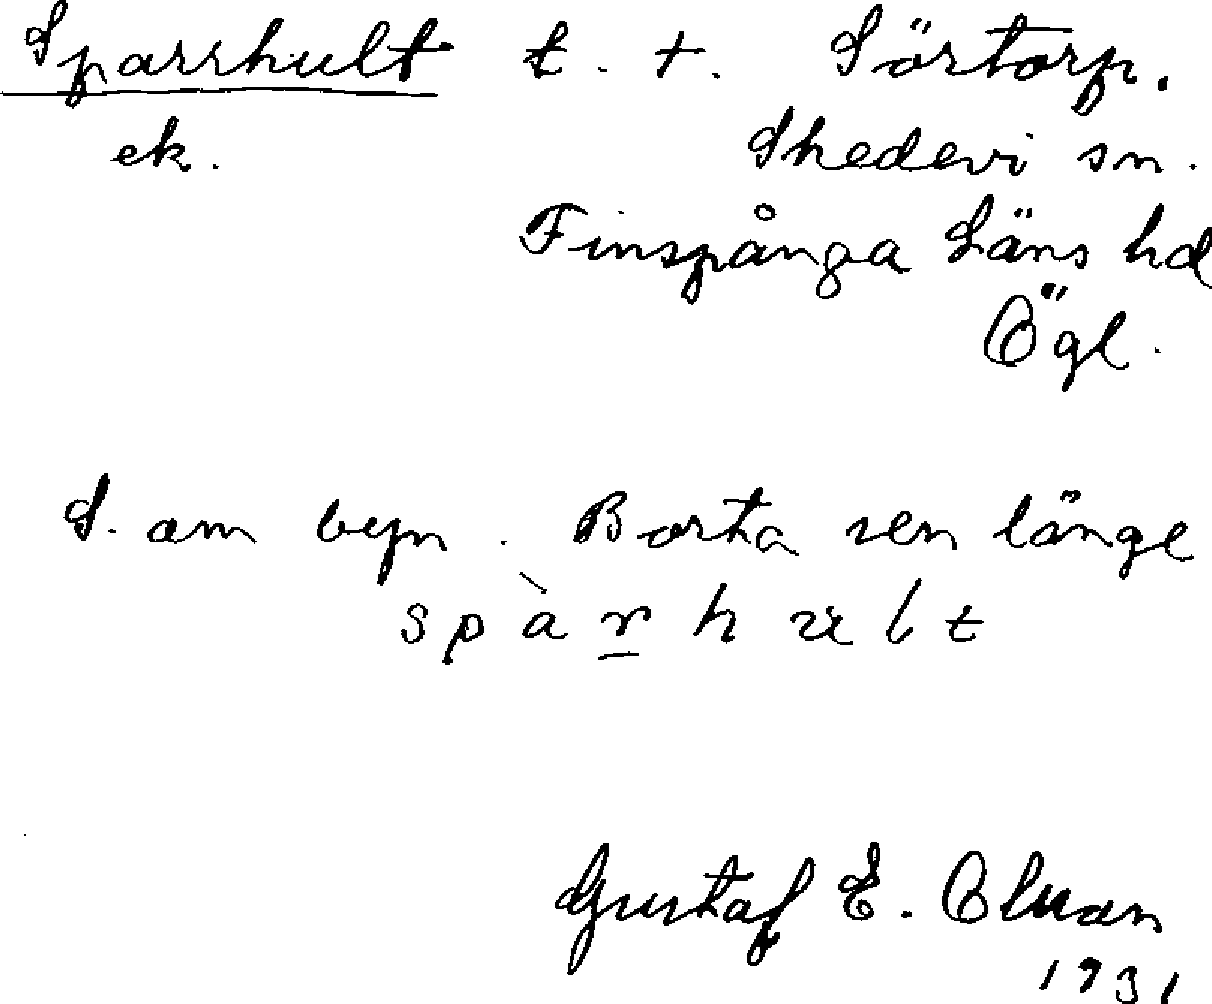 Sparrhult t. t. Sörtorp.
ek. Skedevi sn.
Finspånga Läns hd
Ögl.
S. om byn. Borta sen länge
spàrhult
Gustaf E. Olman
1931